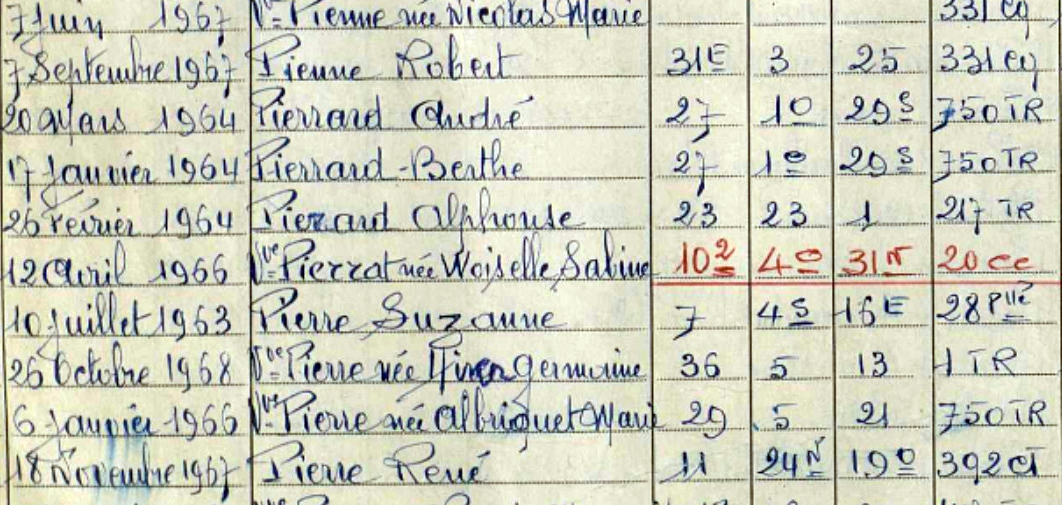 7 Juin 1967 Vve Pienne née Nicolas Marie 331 Cq
7 Septembre 1967 Pienne Robert 31E 3 25 331 Cq
20 Mars 1964 Pierrard André 27 1O 29S 750 TR
17 Janvier 1964 Pierrard-Berthe 27 1O 29S 750 TR
26 Février 1964 Pierard Alphonse 23 23 1 217 TR
12 Avril 1966 Vve Pierrat née Woiselle Sabine 102 4O 31N 20 CC
10 Juillet 1963 Pierre Suzanne 7 4S 16E 28 Plle
26 Octobre 1968 Vve Pierre née Germaine 36 5 13 1 TR
6 Janvier 1966 Vve Pierre née Albriquet Marie 29 5 21 750 TR
18 Novembre 1967 Pierre René 11 24N 19O 392 CT